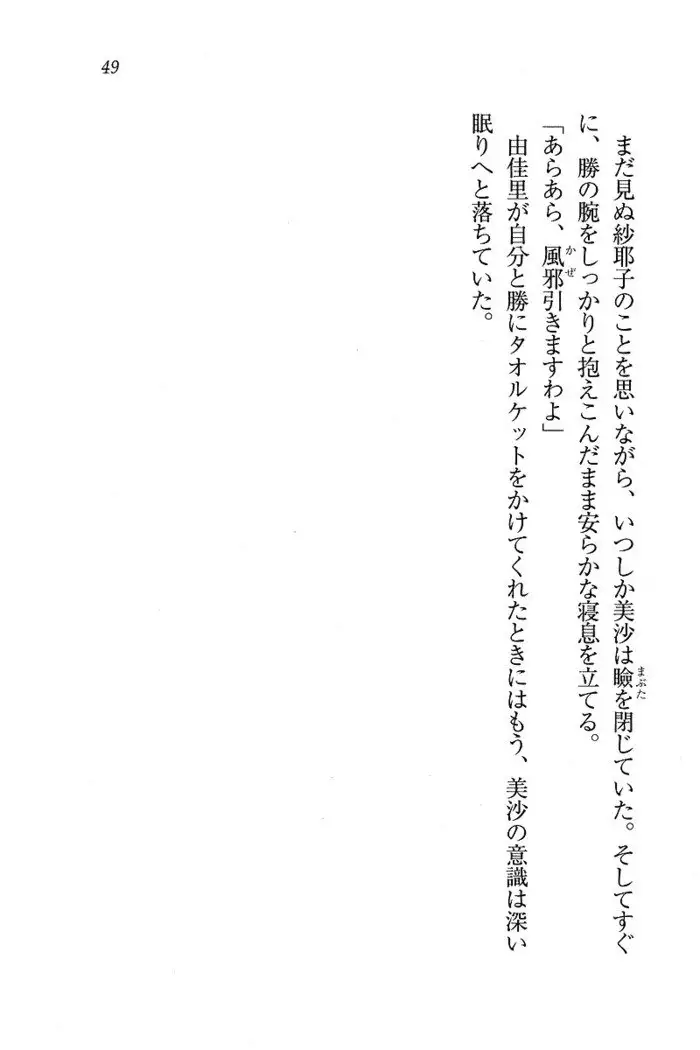 49
まだ見ぬ紗耶子のことを思いながら、いつしか美沙は瞼を閉じていた。そしてすぐ
まぶた
に、勝の腕をしっかりと抱えこんだまま安らかな寝息を立てる。
「あらあら、風邪引きますわよ」
かぜ
由佳里が自分と勝にタオルケットをかけてくれたときにはもう、美沙の意識は深い
眠りへと落ちていた。